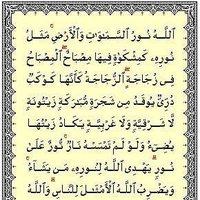 ٱللَّهُ نُورُ ٱلسَّمَٰوَٰتِ وَٱلْأَرْضِ مَثَلُ
نُورِهِۦ كَمِشْكَوٰةٍ فِيهَا مِصْبَاحٌ ٱلْمِصْبَاحُ
فِى زُجَاجَةٍ ٱلزُّجَاجَةُ كَأَنَّهَا كَوْكَبٌ
دُرِّىٌّ يُوقَدُ مِن شَجَرَةٍ مُّبَٰرَكَةٍ زَيْتُونَةٍ
لَّا شَرْقِيَّةٍ وَلَا غَرْبِيَّةٍ يَكَادُ زَيْتُهَا
يُضِىٓءُ وَلَوْ لَمْ تَمْسَسْهُ نَارٌ نُّورٌ عَلَىٰ
نُورٍ يَهْدِى ٱللَّهُ لِنُورِهِۦ مَن يَشَآءُ
وَيَضْرِبُ ٱللَّهُ ٱلْأَمْثَٰلَ لِلنَّاسِ وَٱللَّهُ